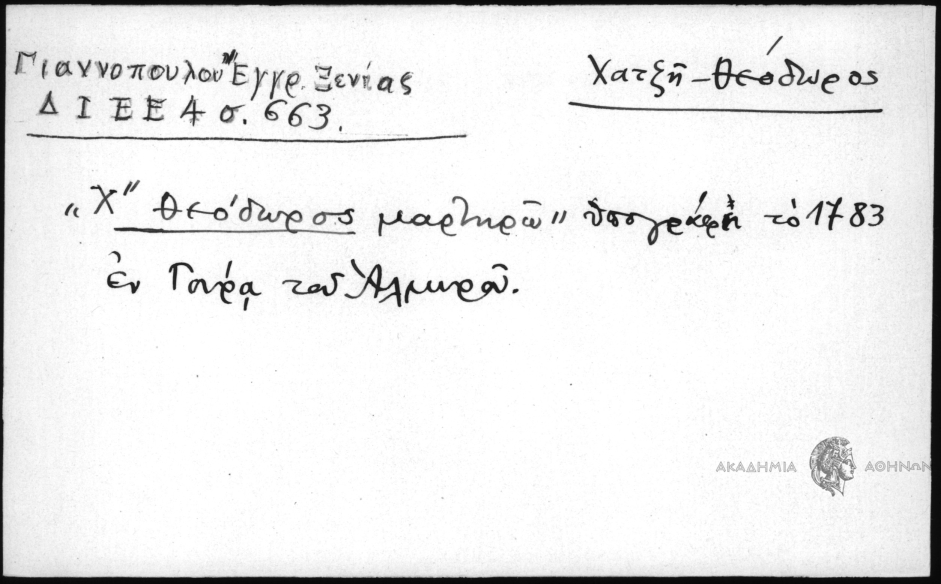 Γιαννοπουλου Ἔγγρ. Ξενίας
Δ Ι Ε Ε Ε 4 σ. 663.
Χατζῆ-Θεόδωρος
„Χ" Θεόδωρος μαρτηρῶ" ὑπογράφει τὸ 1783
ἐν Γούρᾳ τοῦ Ἁλμυροῦ.
ΑΚΑΔΗΜΙΑ ΑΘΗΝΩΝ